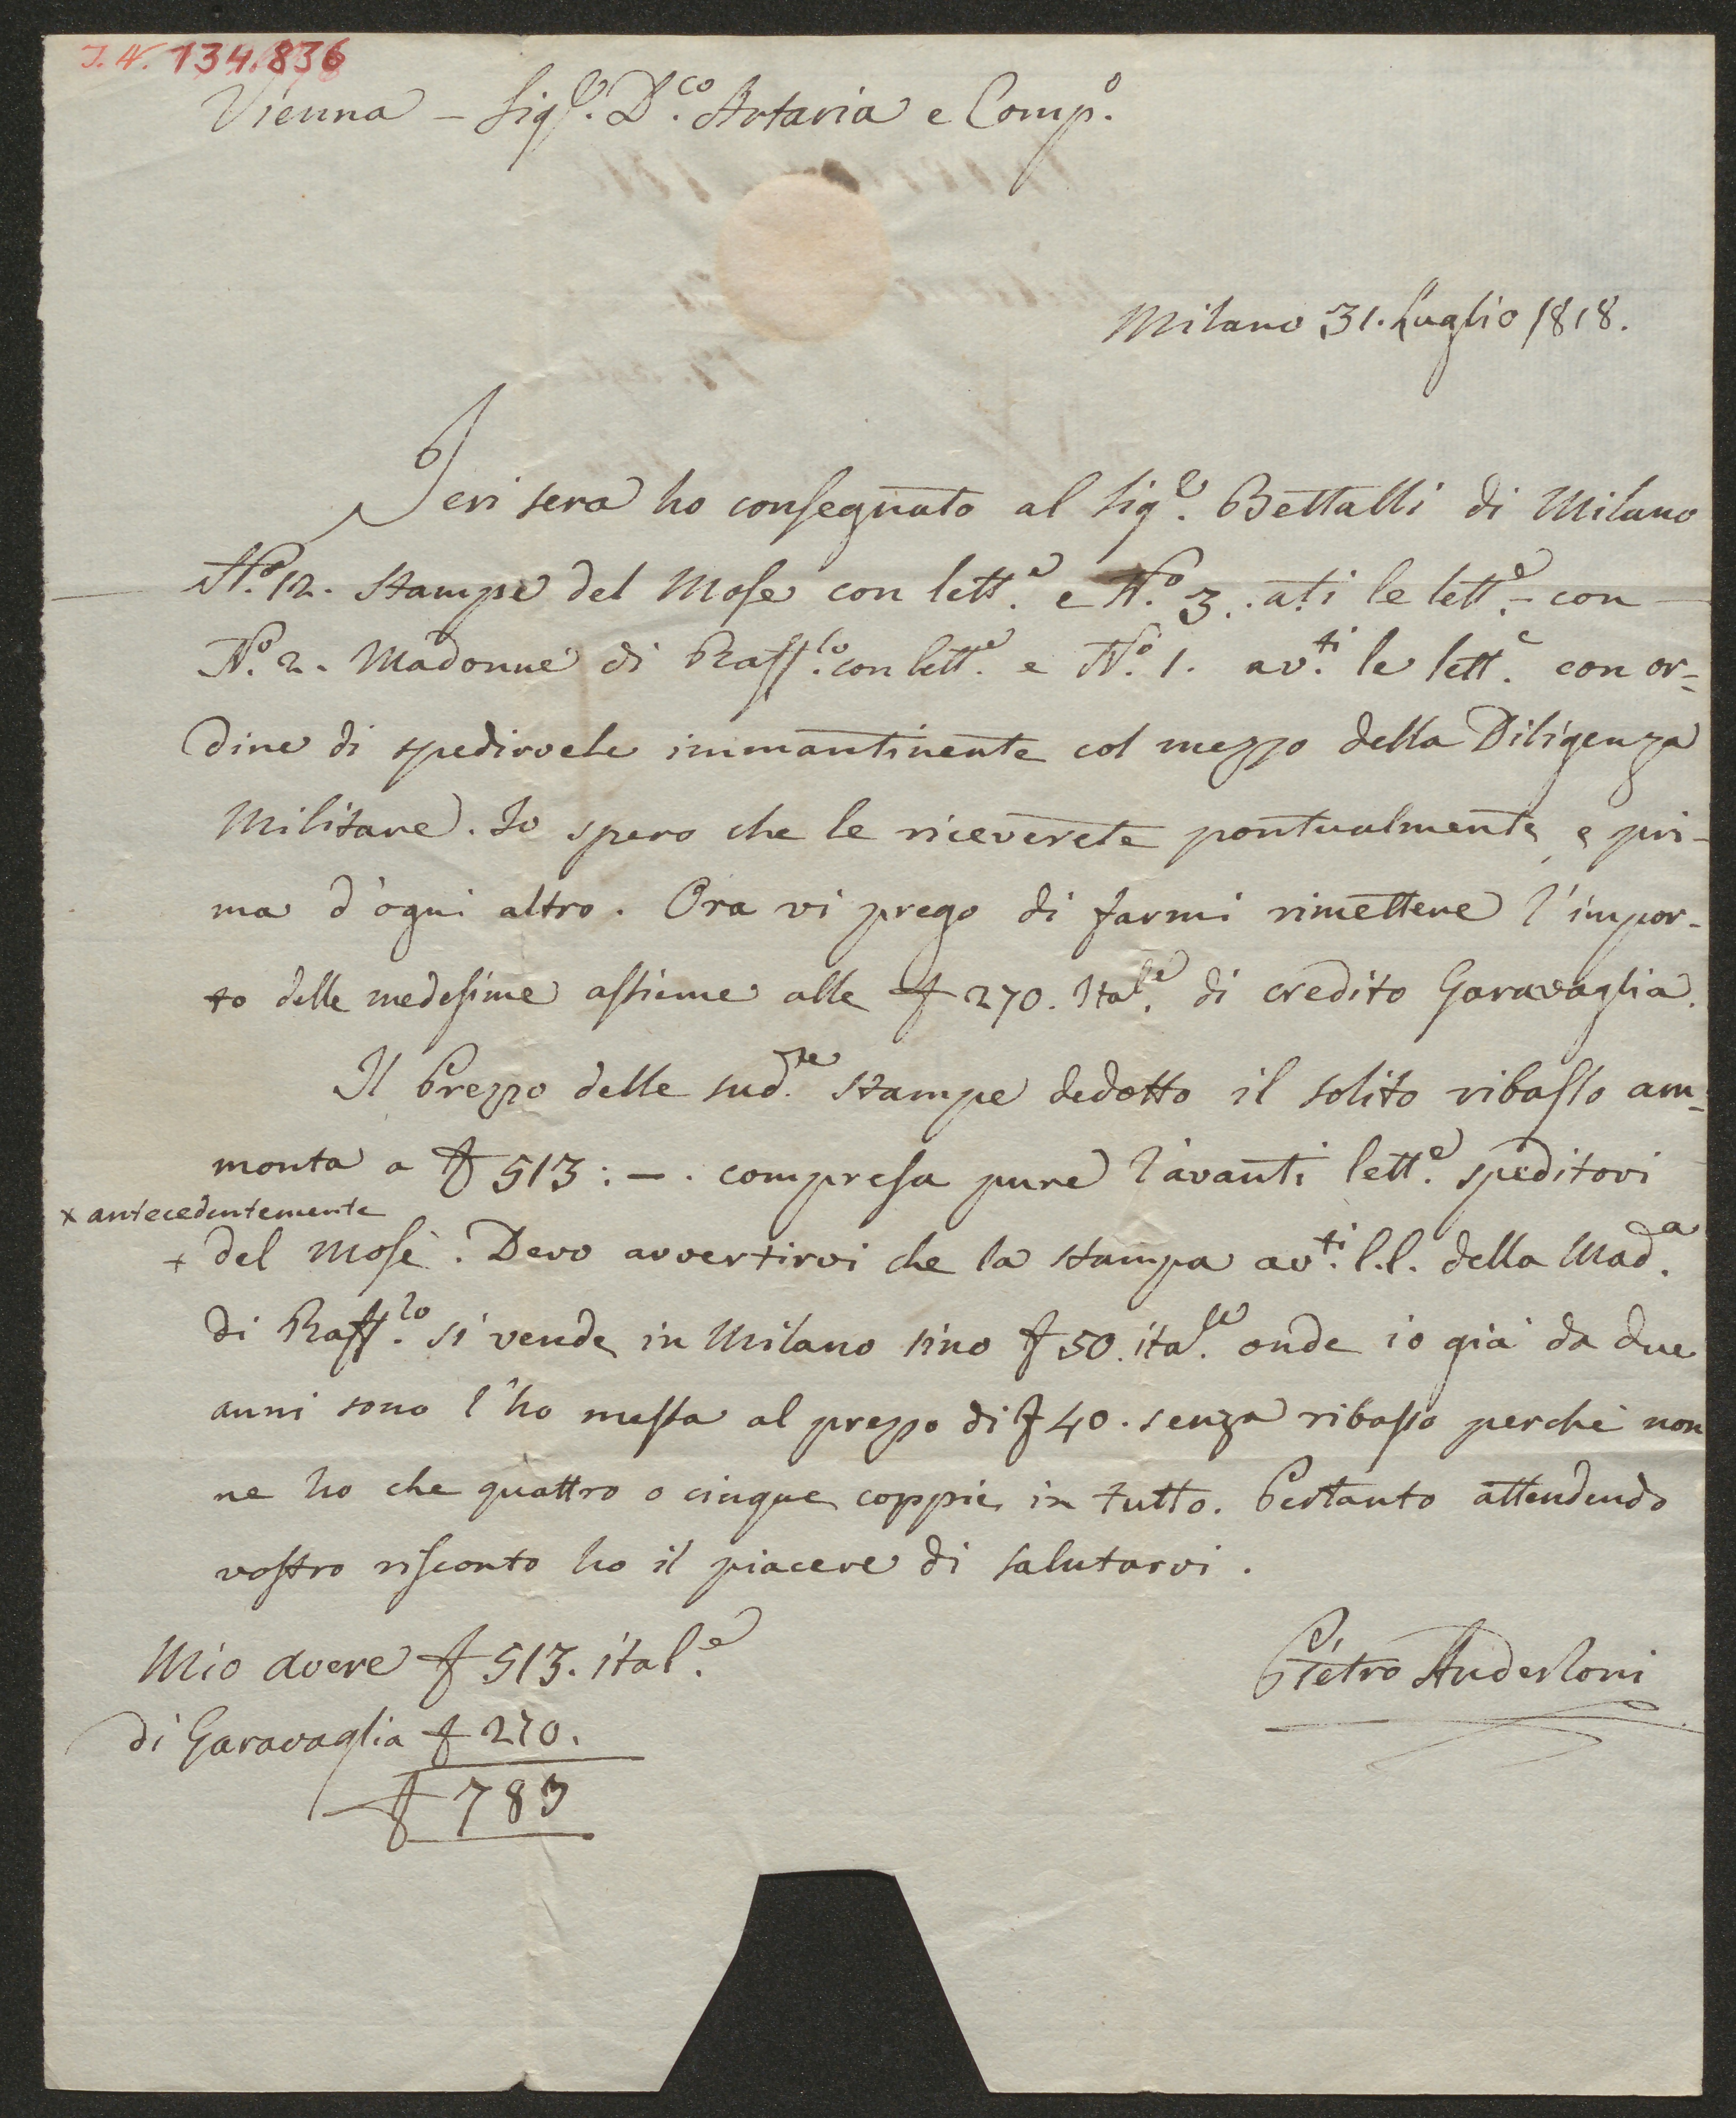 I.N. 134.836
Vienna – Sigr. Dco. Artaria e Compo.
Milano 31. Luglio 1818.
Jeri sera ho consegnato al Sigr. Bettalli di Milano
No. 12. stampe del Mose con lette. e No. 3. ati le lette. – con
No. 2. Madonne di Rafflo. con lette. e No. 1. avti. le lette. con or=
dine di spedirvele immantinente col mezzo della Diligenza
Militare. Io spero che le riceverete pontualmente e pri-
ma d'ogni altro. Ora vi prego di farmi rimettere l'impor-
to delle medesime assieme alle £ 270. Itale. di credito Garavaglia.
Il Prezzo delle sudte. stampe dedotto il solito ribasso am=
monta a £ 513: –. compresa pure l'avanti lette. speditovi
x antecedentemente
x del Mosè. Devo avvertirvi che la stampa avti. l.l. della Mada.
di Rafflo. si vende in Milano sino £ 50. itale. onde io già da due
anni sono l'ho messa al prezzo di £ 40. senza ribasso perchè non
ne ho che quattro o cinque coppie in tutto. Pertanto attendendo
vostro risconto ho il piacere di salutarvi.
Mio avere £ 513. itale.
Pietro Anderloni
di Garavaglia £ 270.
£ 783